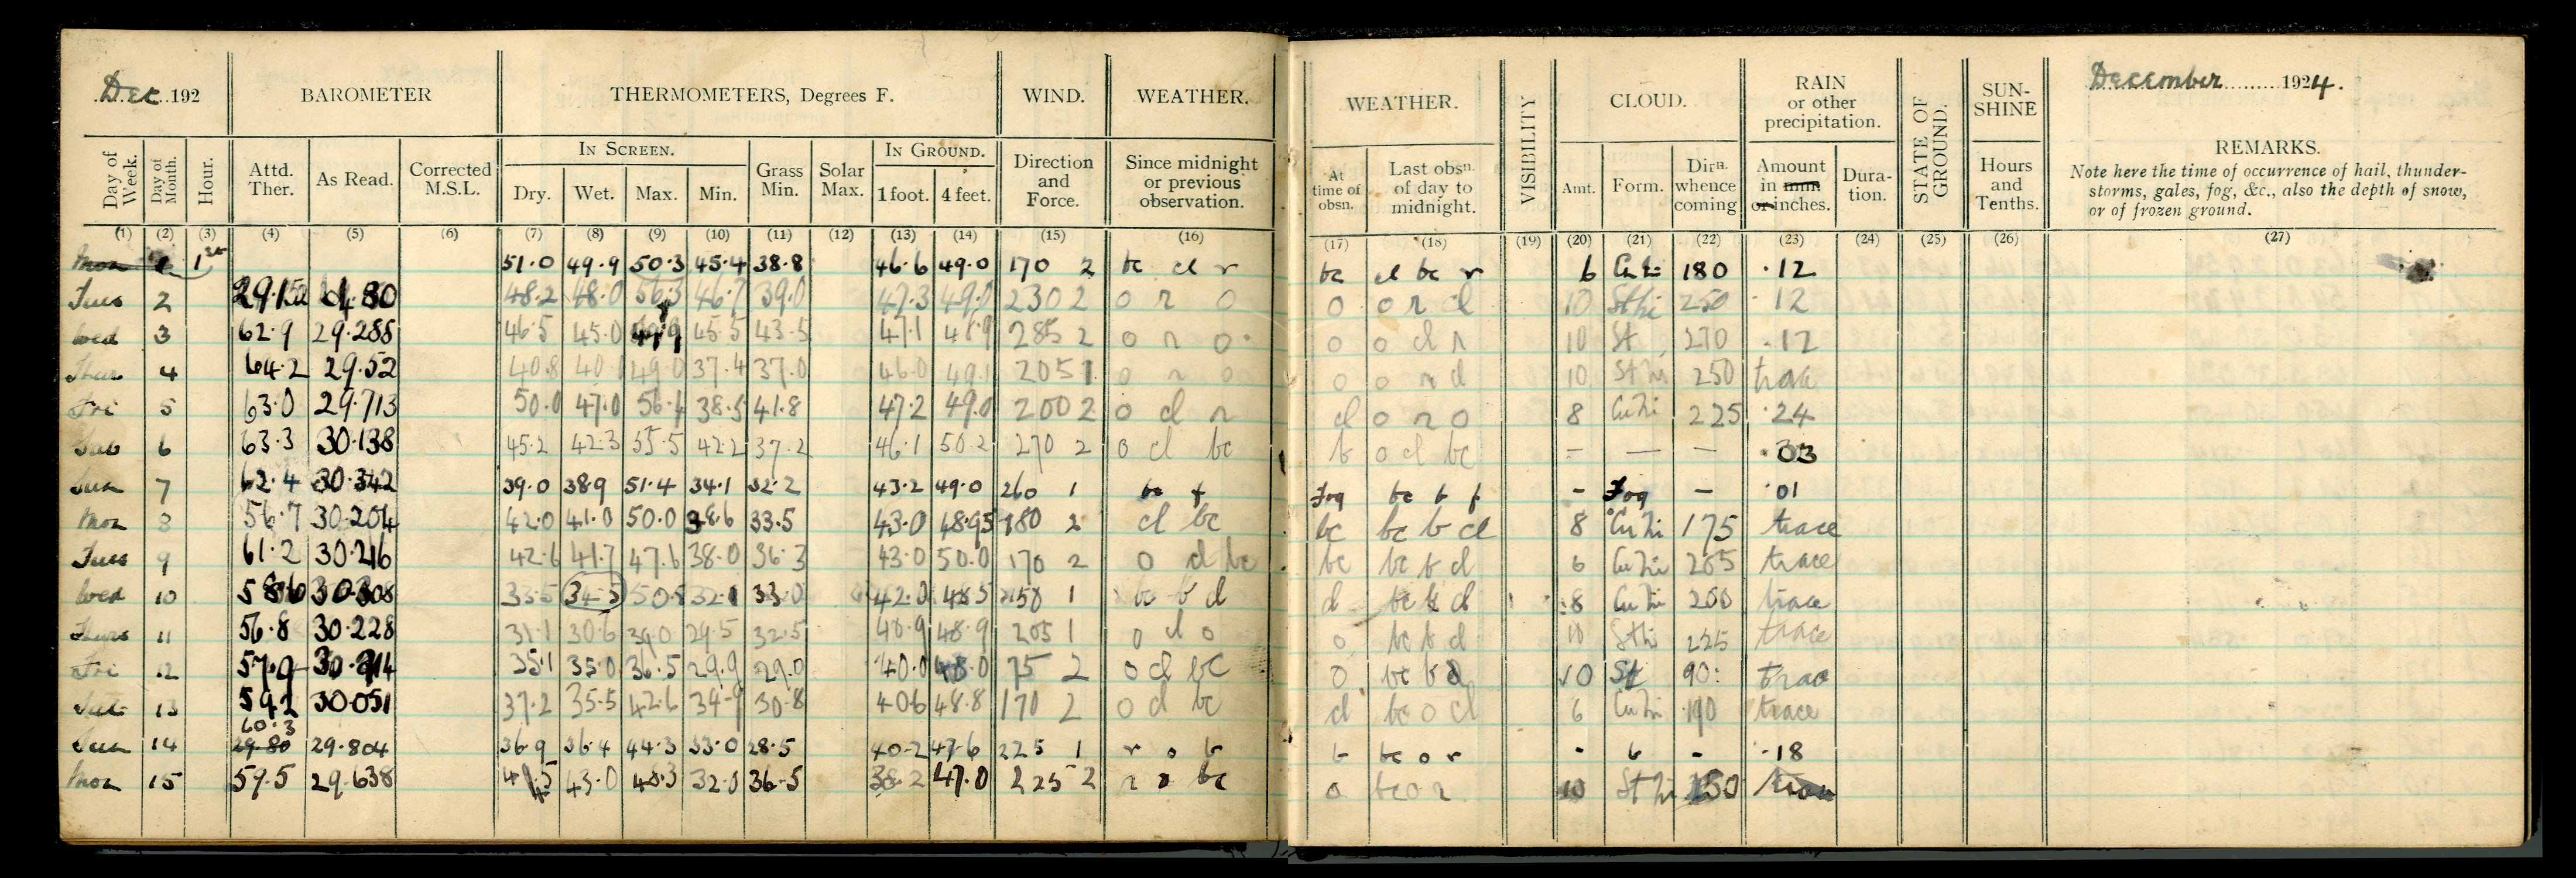 Dec 192
BAROMETER
THERMOMETERS, Degrees F.
WIND.
WEATHER.
WEATHER.
VISIBILITY
CLOUD.
RAIN or other precipitation.
STATE OF GROUND.
SUN-SHINE
December 1924.
Day of Week.
Day of Month.
Hour.
Attd. Ther.
As Read.
Corrected M.S.L.
IN SCREEN.
Dry.
Wet.
Max.
Min.
Grass Min.
Solar Max.
IN GROUND.
1 foot.
4 feet.
Direction and Force.
Since midnight or previous observation.
At time of obsn.
Last obsn. of day to midnight.
Amt.
Form.
Dirn. whence coming
Amount in mm or inches.
Dura-tion.
Hours and Tenths.
REMARKS.
Note here the time of occurrence of hail, thunder-
storms, gales, fog, &c., also the depth of snow,
or of frozen ground.
(1) (2) (3) (4) (5) (6) (7) (8) (9) (10) (11) (12) (13) (14) (15) (16) (17) (18) (19) (20) (21) (22) (23) (24) (25) (26) (27)
Mon 1 51.0 49.9 50.3 45.4 38.8 46.6 49.0 170 2 bc cl r bc cl bc r 6 CuNi 180 .12
Tues 2 48.2 48.0 56.3 46.7 39.0 47.3 49.0 230 2 o r o o o r cl 10 StNi 250 .12
Wed 3 62.9 29.285 46.5 45.0 49.9 45.5 43.5 47.1 48.9 285 2 o r o o o cl r 10 St 270 .12
Thur 4 64.2 29.52 40.8 40.1 49.0 37.4 37.0 46.0 49.1 205 1 o r o o o r cl 10 StNi 250 trace
Fri 5 63.0 29.713 50.0 47.0 56.4 38.5 41.8 47.2 49.0 200 2 o cl r cl o r o 8 CuNi 225 .24
Sat 6 63.3 30.138 45.2 42.3 55.5 42.2 37.2 46.1 50.2 270 2 o cl bc b o cl bc — — — .03
Sun 7 62.4 30.342 39.0 38.9 51.4 34.1 32.2 43.2 49.0 260 1 bc f Fog bc b f - Fog - .01
Mon 8 56.7 30.204 42.0 41.0 50.0 38.6 33.5 43.0 48.95 180 2 cl bc bc bc b cl 8 CuNi 175 trace
Tues 9 61.2 30.216 42.6 41.7 47.6 38.0 36.3 43.0 50.0 170 2 o cl bc bc bc b cl 6 CuNi 265 trace
Wed 10 30.308 33.5 34.5 50.8 32.1 33.0 42.0 48.5 1 bc b cl cl bc b cl 8 CuNi 200 trace
Thurs 11 56.8 30.228 31.1 30.6 39.0 29.5 32.5 40.9 48.9 205 1 o cl o o bc b cl 10 StNi 225 trace
Fri 12 35.1 35.0 36.5 29.9 29.0 40.0 48.0 75 2 o cl bc o bc b cl 10 St 90 trace
Sat 13 59.2 30.051 37.2 35.5 42.6 34.9 30.8 40.6 48.8 170 2 o cl bc cl bc o cl 6 CuNi 190 trace
60.3
Sun 14 29.80 29.804 36.9 36.4 44.3 33.0 28.5 40.2 47.6 225 1 r o b b bc o r - b - .18
Mon 15 59.5 29.638 43.0 48.3 32.0 36.5 38.2 47.0 225 2 r o bc o bc o r 10 StNi 250